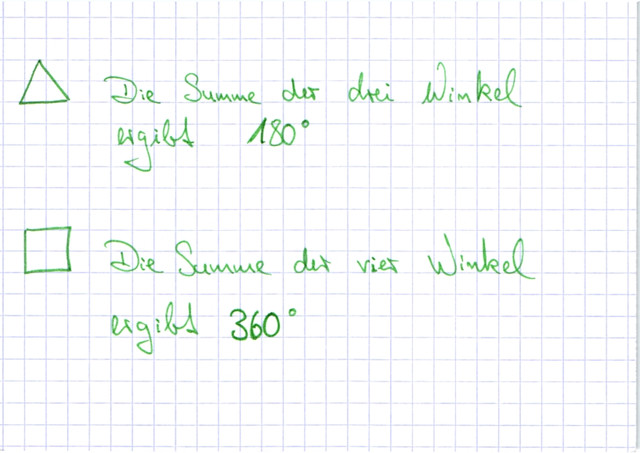 Die Summe der drei Winkel
ergibt 180°
Die Summe der vier Winkel
ergibt 360°